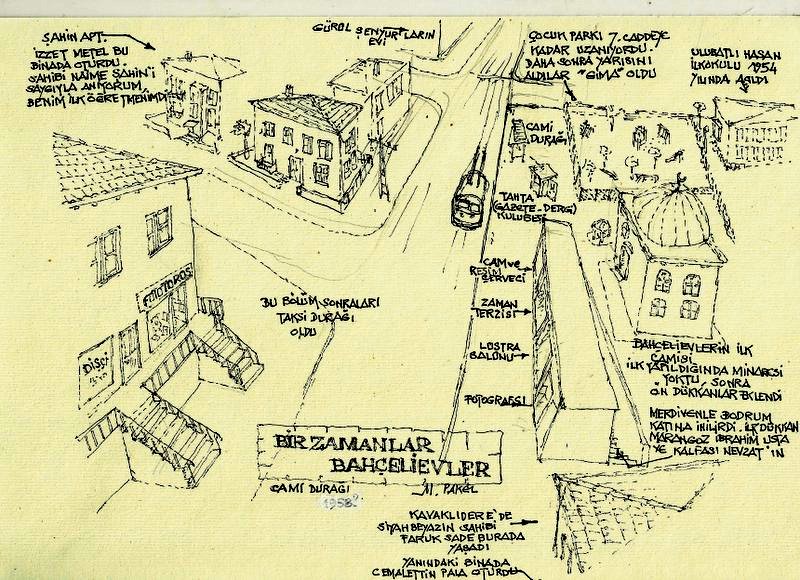 ŞAHİN APT.
İZZET METEL BU
BİNADA OTURDU.
SAHİBİ NAİME ŞAHİN'İ
SAYGIYLA ANIYORUM,
BENİM İLK ÖĞRETMENİMDİ
GÜROL ŞENYURT'LARIN
EVİ
ÇOCUK PARKI 7. CADDEYE
KADAR UZANIYORDU.
DAHA SONRA YARISINI
ALDILAR "GİMA" OLDU
ULUBATLI HASAN
İLKOKULU 1954
YILINDA AÇILDI
CAMİ
DURAĞI
TAHTA
(GAZETE-DERGİ)
KULÜBESİ
CAM VE
RESİM
ÇERVECİ
ZAMAN
TERZİSİ
LOSTRA
SALONU
FOTOĞRAFÇI
FOTO TOROS
DİŞÇİ
BU BÖLÜM SONRALARI
TAKSİ DURAĞI
OLDU
BAHÇELİEVLERİN İLK
CAMİSİ
İLK YAPILDIĞINDA MİNARESİ
YOKTU, SONRA
ÖN DÜKKANLAR EKLENDİ
MERDİVENLE BODRUM
KATINA İNİLİRDİ. İLK DÜKKAN
MARANGOZ İBRAHİM USTA
VE KALFASI NEVZAT'IN
BİR ZAMANLAR
BAHÇELİEVLER
CAMİ DURAĞI
1958?
KAVAKLIDERE'DE
SİYAH BEYAZIN SAHİBİ
FARUK SADE BURADA
YAŞADI
YANINDAKİ BİNADA
CEMALETTİN PALA OTURDU